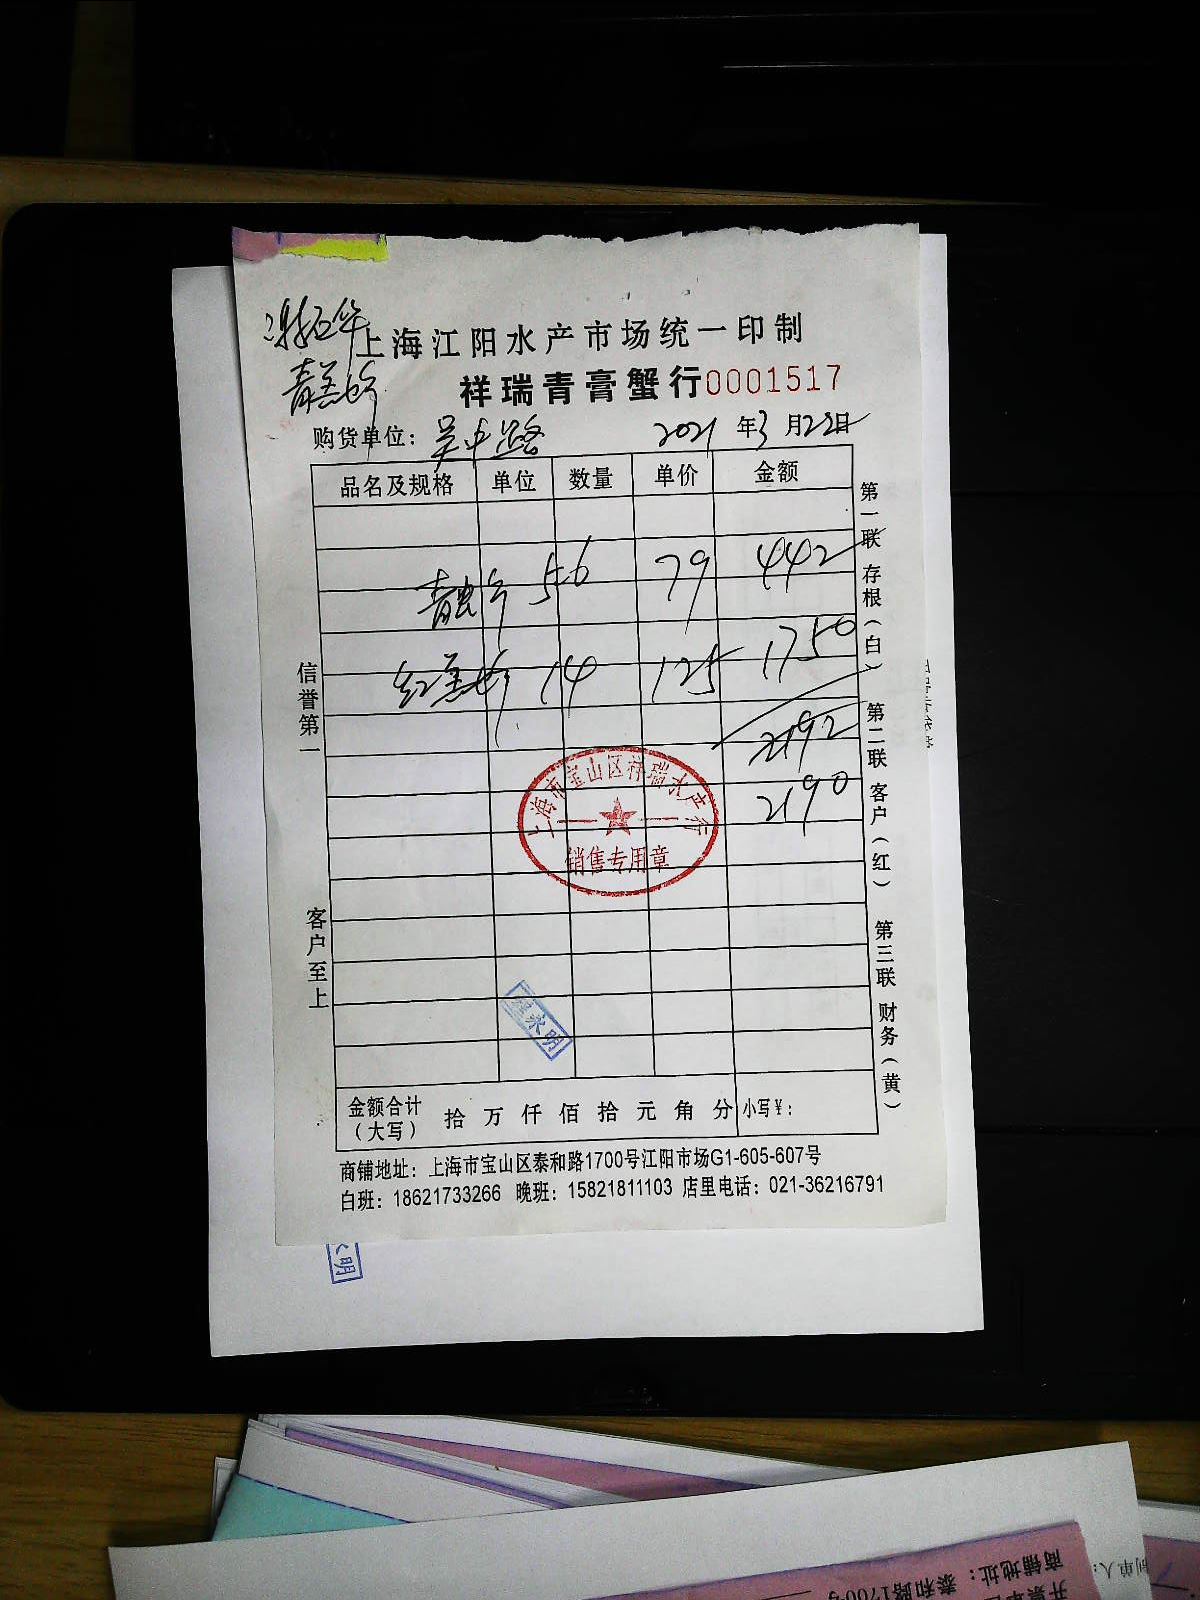 上海江阳水产市场统一印制
祥瑞青膏蟹行0001517
购货单位：吴中路 2021年3月22日
品名及规格 单位 数量 单价 金额
5.6 79 442
14 125 1750
2192
2190
上海市宝山区祥瑞水产行
销售专用章
永明
信誉第一
客户至上
第一联 存根（白） 第二联 客户（红） 第三联 财务（黄）
金额合计（大写） 拾 万 仟 佰 拾 元 角 分 小写¥：
商铺地址：上海市宝山区泰和路1700号江阳市场G1-605-607号
白班：18621733266 晚班：15821811103 店里电话：021-36216791
永明
制单人：
商铺地址：泰和路1700号